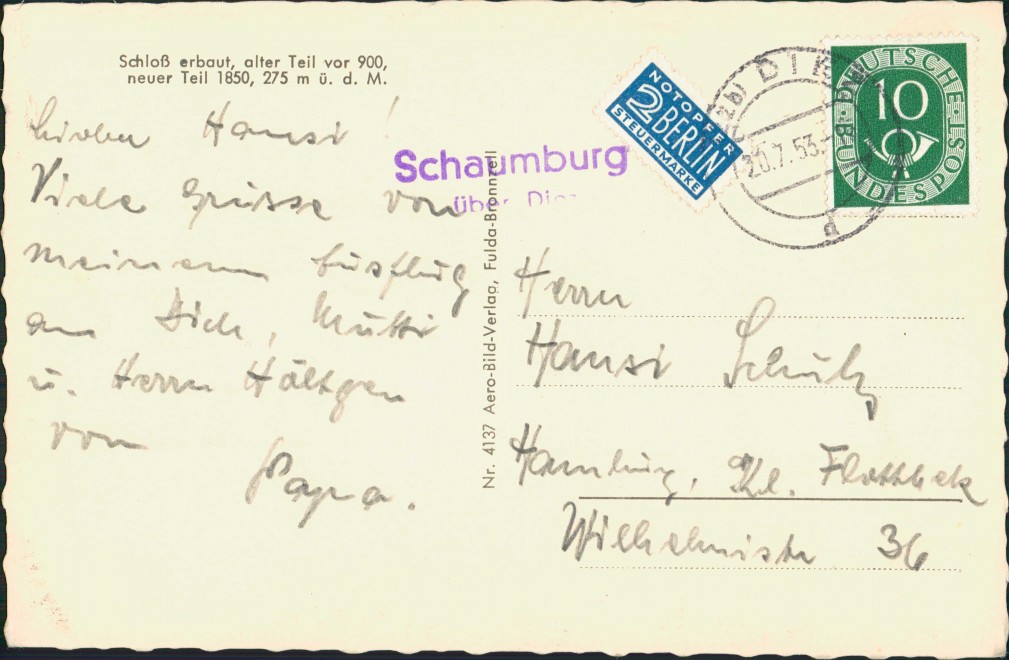 Schloß erbaut, alter Teil vor 900,
neuer Teil 1850, 275 m ü. d. M.
Lieber Hansi!
Viele Grüsse von
meinem Ausflug
an Dich, Mutti
u. Herrn Höltgen
von
Papa.
Schaumburg
über Diez
Nr. 4137 Aero-Bild-Verlag, Fulda-Bronnzell
NOTOPFER
2 BERLIN
STEUERMARKE
20.7.53
d
DEUTSCHE BUNDESPOST
10
Herrn
Hansi Schulz
Hamburg, Kl. Flottbek
Wilhelmistr 36